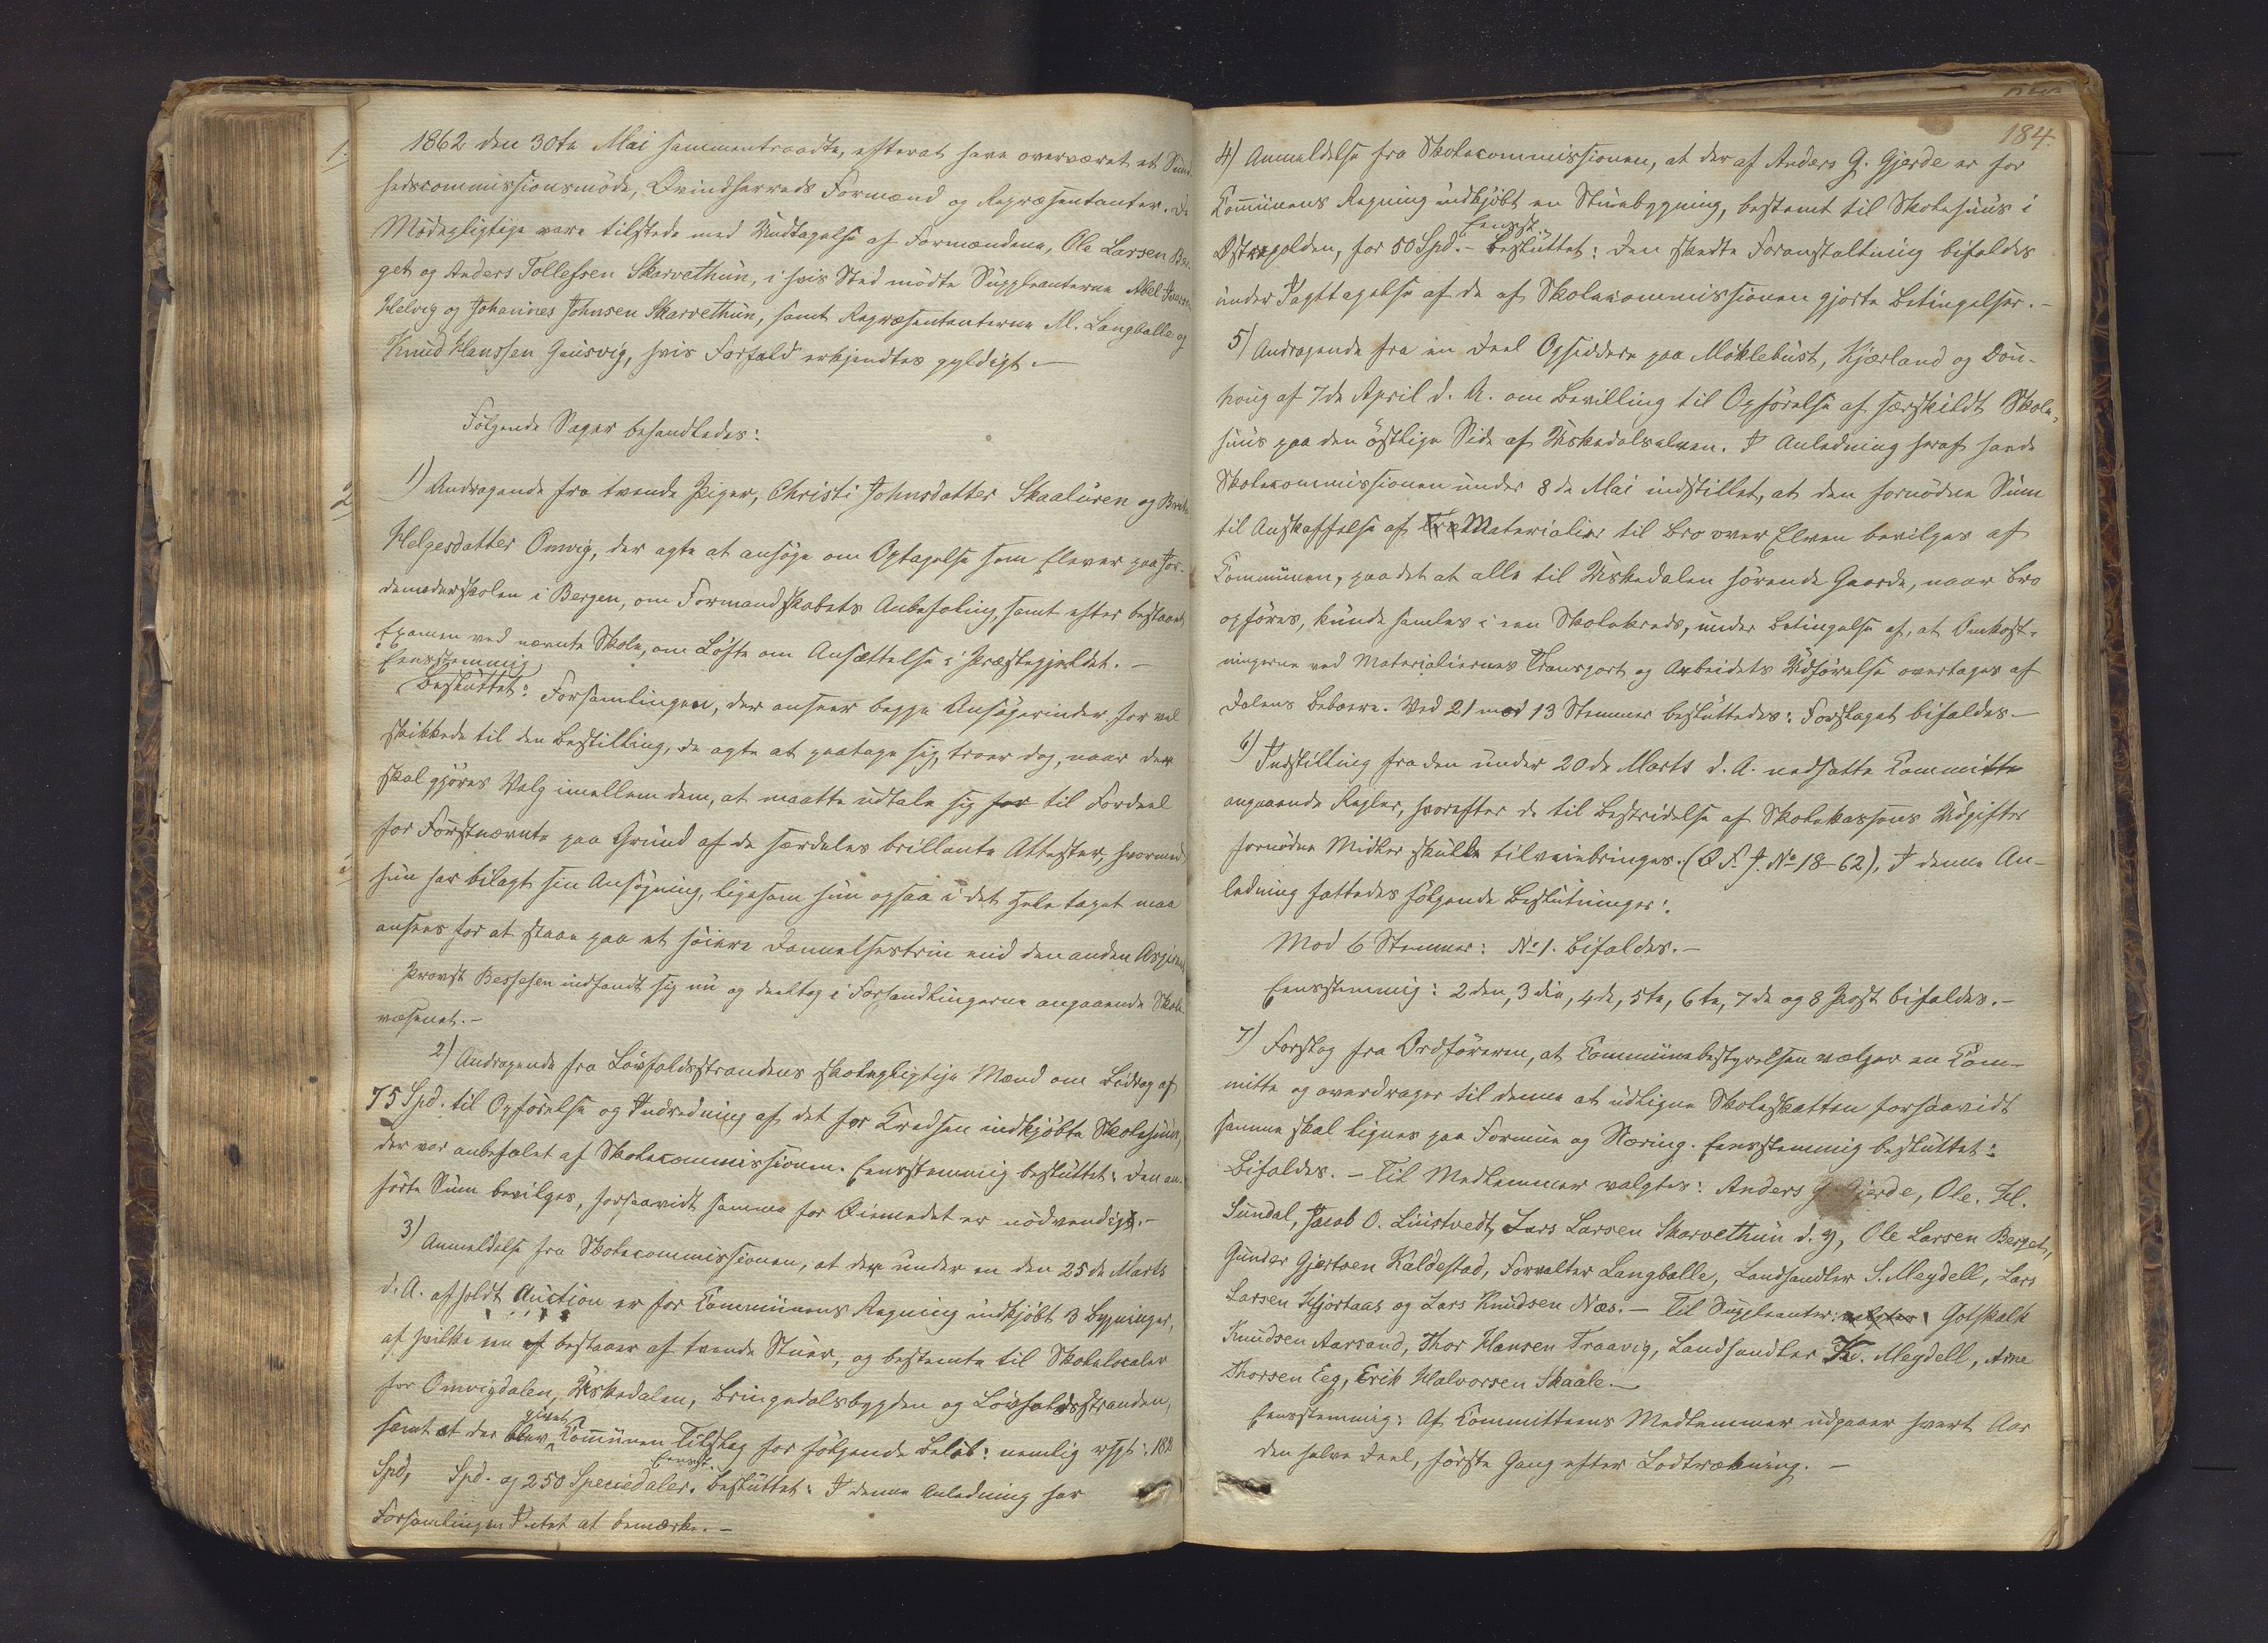 1862 den 30te Mai sammentraadte, efterat have overværet et Sund-
hedscommissionsmöde, Qvindherreds Formænd og Repræsentanter. De
Mödepligtige vare tilstede med Undtagelse af Formændene, Ole Larsen Ber-
get og Anders Tollefsen Skarvethun, i hvis Sted mödte Suppleanterne Abel Iversen
Helvig og Johannes Johnsen Skarvethun, samt Repræsentanterne M. Langballe og
Knud Hanssen Gausvig, hvis Forfald erkjendtes gyldigt.–
Fölgende Sager behandledes:
1) Andragende fra tvende Piger, Christi Johnsdatter Skaaluren og
Helgesdatter Omvig, der agte at ansöge om Optagelse som Elever paa Jor-
demoderskolen i Bergen, om Formandskabets Anbefaling, samt efter bestaaet
Examen ved nævnte Skole, om Löfte om Ansættelse i Præstegjældet.–
Eensstemmig
Besluttet: Forsamlingen, der anseer begge Ansögerinder for vel
skikkede til den Bestilling, de agte at paatage sig, troer dog, naar der
skal gjöres Valg imellem dem, at maatte udtale sig for til Fordeel
for Förstnævnte paa Grund af de særdeles brillante Attester, hvormed
hun har bilagt sin Ansögning, ligesom hun ogsaa i det Hele taget maa
ansees for at staae paa et höiere Dannelsestrin end den anden
Provst Bessesen indfandt sig nu og deeltog i Forhandlingerne angaaende Skole-
væsenet.–
2) Andragende fra Lövfaldsstrandens skolepligtige Mænd om Bidrag af
75 Spd. til Opförelse og Indredning af det for Kredsen indkjöbte Skolehuus,
der var anbefalet af Skolecommissionen. Eensstemmig besluttet: Den an-
förte Sum bevilges, forsaavidt samme for Öiemedet er nödvendigt.–
3) Anmeldelse fra Skolecommissionen, at der under en den 25de Marts
d. A. afholdt Auction er for Communens Regning indkjöbt 3 Bygninger,
af hvilke en af bestaaer af tvende Stuer, og bestemte til Skolelocaler
for Omvigdalen, Uskedalen, Bringedalsbygden og Lövfaldsstranden,
givet
samt at der blev Communen Tilslag for fölgende Belöb: nemlig resp:
Eenst.
Spd, Spd. og 250 Speciedaler. Besluttet: I denne Anledning har
Forsamlingen Intet at bemærke.–
184.
4) Anmeldelse fra Skolecommissionen, at der af Anders G. Gjerde er for
Communens Regning indkjöbt en Stuebygning, bestemt til Skolehuus i
Eensst.
Ostrepolden, for 50 Spd.– Besluttet: Den skedte Foranstaltning bifaldes
under Iagttagelse af de af Skolecommissionen gjorte Betingelser.–
5) Andragende fra en Deel Opsiddere paa Möklebust, Kjærland og Dön-
houg af 7de April d. A. om Bevilling til Opförelse af særskildt Skole-
huus paa den östlige Side af Uskedalselven. I Anledning heraf havde
Skolecommissionen under 8de Mai indstillet, at den fornödne Sum
til Anskaffelse af Træ Materialier til Bro over Elven bevilges af
Communen, paadet at alle til Uskedalen hörende Gaarde, naar Bro
opföres, kunde samles i een Skolekreds, under Betingelse af, at Omkost-
ningerne ved Materialiernes Transport og Arbeidets Udförelse overtages af
Dalens Beboere. Ved 21 mod 13 Stemmer besluttedes: Forslaget bifaldes.–
6) Indstilling fra den under 20de Marts d. A. nedsatte Committe
angaaende Regler, hvorefter de til Bestridelse af Skolekassens Udgifter
fornödne Midler skulle tilveiebringes. (Q F. J. No 18–62). I denne An-
ledning fattedes fölgende Beslutninger:
Mod 6 Stemmer: No 1. Bifaldes.–
Eensstemmig: 2den, 3die, 4de, 5te, 6te, 7de og 8 Post bifaldes.–
7) Forslag fra Ordföreren, at Communebestyrelsen vælger en Com-
mitte og overdrager til denne at udligne Skoleskatten forsaavidt
samme skal lignes paa Formue og Næring. Eensstemmig besluttet:
Bifaldes.– Til Medlemmer valgtes: Anders G. Gjerde, Ole. Hl.
Sundal, Jacob O. Liustvedt, Lars Larsen Skarvethun d. y, Ole Larsen Berget,
Gunder Gjertsen Kaldestad, Forvalter Langballe, Landhandler S. Meydell, Lars
Larsen Hjortaas og Lars Knudsen Næs.– Til Suppleanter: valgtes: Gotskalk
Knudsen Aarsand, Thor Hansen Traavig, Landhandler K. Meydell, Arne
Thorsen Eeg, Erik Halvorsen Skaale.–
Eensstemmig: Af Committeens Medlemmer udgaaer hvert Aar
den halve Deel, förste Gang efter Lodtrækning.–